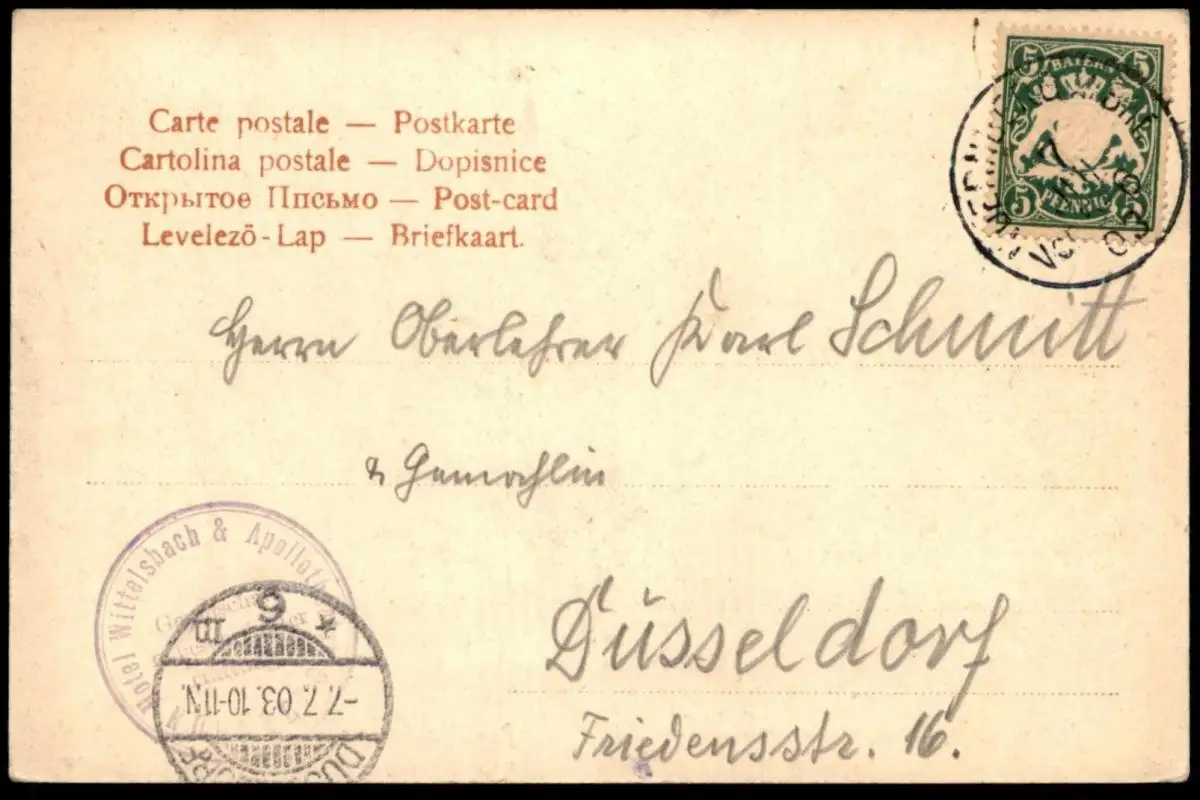 Carte postale — Postkarte
Cartolina postale — Dopisnice
Открытое Письмо — Post-card
Levelező-Lap — Briefkaart.
5 BAYERN 5
5 PFENNIG 5
7
Vor
Herrn Oberlehrer Karl Schmitt
& Gemahlin
Düsseldorf
Friedensstr. 16.
Hotel Wittelsbach & Apolloth
6
-7.7.03.10-11N.
DÜS